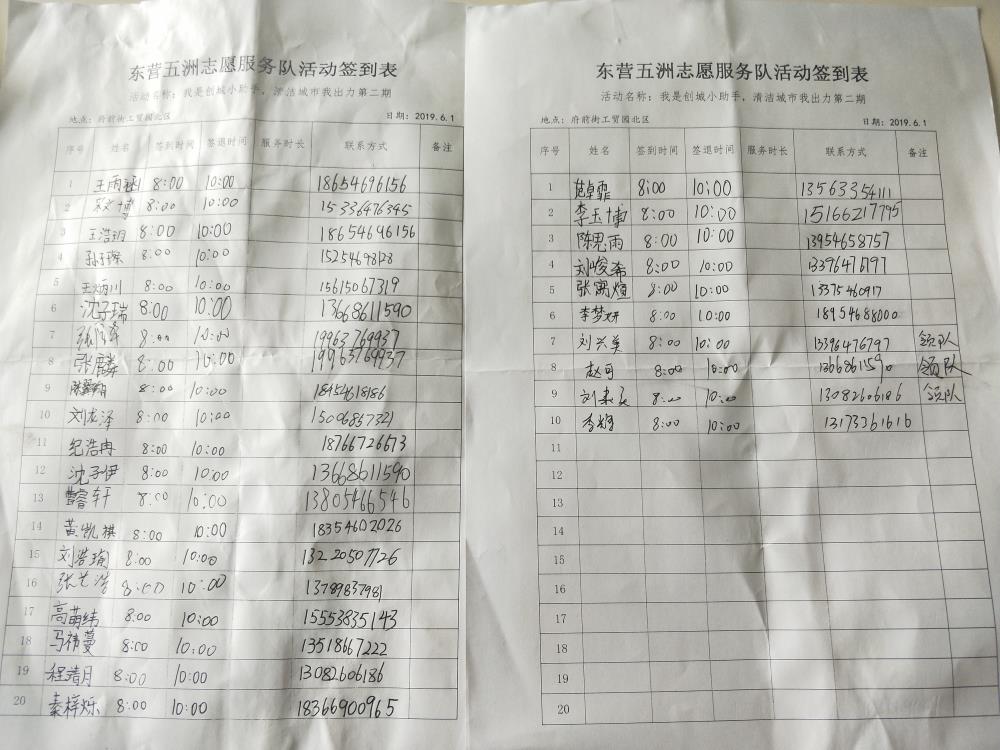 东营五洲志愿服务队活动签到表
活动名称：我是创城小助手，清洁城市我出力第二期
地点：府前街工贸园北区 日期：2019.6.1
序号 姓名 签到时间 签退时间 服务时长 联系方式 备注
1 王雨涵 8:00 10:00 18654696156
2 8:00 10:00 15336476345
3 王浩玥 8:00 10:00 18654696156
4 孙子琛 8:00 10:00
5 王炳川 8:00 10:00 15615067319
6 沈子瑞 8:00 10:00 13668611590
7 8:00 10:00 19963769937
8 张麟 8:00 10:00 19963769937
9 8:00 10:00
10 刘龙泽 8:00 10:00 15096857321
11 纪浩冉 8:00 10:00 18766726573
12 沈子伊 8:00 10:00 13668611590
13 曹睿轩 8:00 10:00 13805466546
14 黄凯祺 8:00 10:00 18354602026
15 刘浩瑜 8:00 10:00 13220507726
16 张艺浩 8:00 10:00 13789837981
17 高萌纬 8:00 10:00 15553835143
18 马祎蔓 8:00 10:00 13518667222
19 程靖月 8:00 10:00 13082606186
20 秦梓烁 8:00 10:00 18366900965
东营五洲志愿服务队活动签到表
活动名称：我是创城小助手，清洁城市我出力第二期
地点：府前街工贸园北区 日期：2019.6.1
序号 姓名 签到时间 签退时间 服务时长 联系方式 备注
1 范卓霏 8:00 10:00 13563354111
2 李玉博 8:00 10:00 15166217795
3 陈思雨 8:00 10:00 13954658757
4 刘峻希 8:00 10:00 13396476797
5 张寓煊 8:00 10:00 13375460917
6 李梦妍 8:00 10:00 18954688000
7 刘兴美 8:00 10:00 13396476797 领队
8 赵可 8:00 10:00 13668611590 领队
9 8:00 10:00 13082606186 领队
10 8:00 10:00 13173361616
11
12
13
14
15
16
17
18
19
20